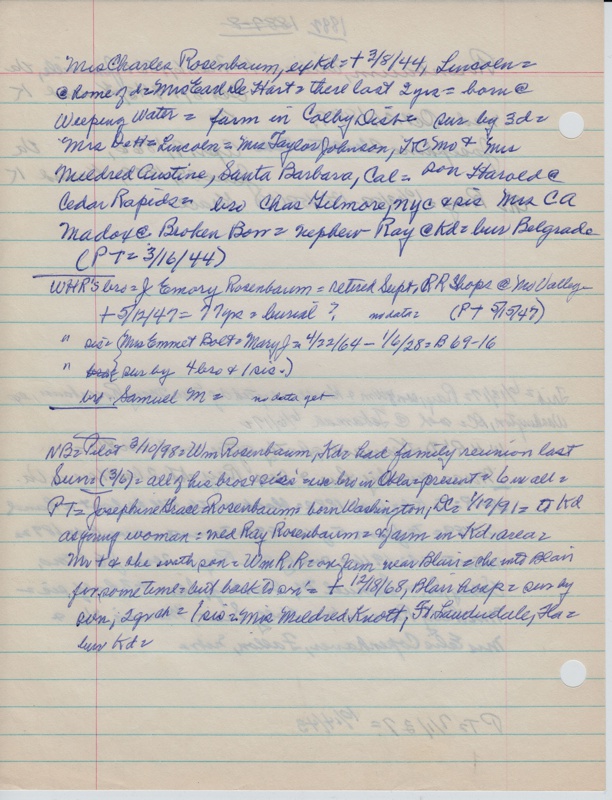 Mrs Charles Rosenbaum, exKd = + 3/8/44, Lincoln =
@ home of d = Mrs Earl De Hart = there last 2 yrs = born @
Weeping Water = farm in Colby Dist = sur by 3d =
Mrs DeH = Lincoln = Mrs Taylor Johnson, KC Mo & Mrs
Mildred Austine, Santa Barbara, Cal = son Harold @
Cedar Rapids = bro Chas Gilmore, NYC & sis Mrs CA
Madox @ Broken Bow = nephew Ray @ Kd = bur Belgrade
(PT = 3/16/44)
WHR's bro = J. Emory Rosenbaum = retired Supt, RR Shops @ Mo Valley =
+ 5/12/47 = 77 yrs = burial ? no data = (PT 5/15/47)
" sis = {Mrs Emmet Bolt = Mary J = 4/22/64 - 1/6/28 = B 69-16
" {sur by 4 bro & 1 sis.)
bro Samuel M = no data yet
NB = Pilot 3/10/98 = Wm Rosenbaum, Kd = had family reunion last
Sun = (3/6) = all of his bros & sis = bro in Okla = present = 6 in all =
PT = Josephine Grace = Rosenbaum = born Washington, DC = 1/12/91 = to Kd
as young woman = med Ray Rosenbaum = farm in Kd area =
Mr + & she with son = Wm R. R = on farm near Blair = she into Blair
for some time = but back to son's = + 12/18/68, Blair hosp = sur by
son, 2 grch = 1 sis = Mrs Mildred Knott, Ft Lauderdale, Fla =
bur Kd =